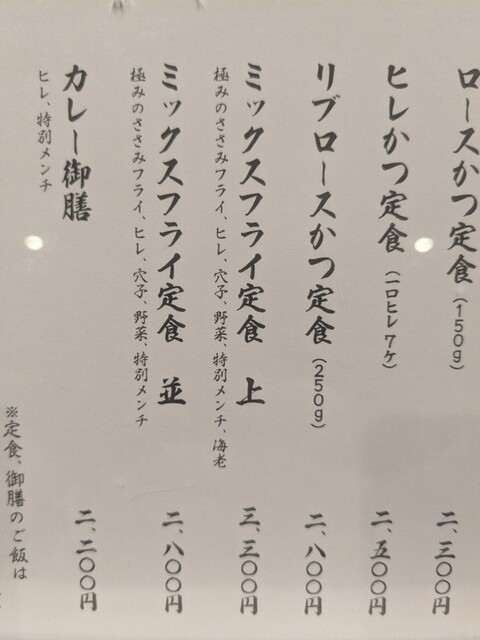 ロースかつ定食（150g） 二、三〇〇円
ヒレかつ定食（一口ヒレ 7ケ） 二、五〇〇円
リブロースかつ定食（250g） 二、八〇〇円
ミックスフライ定食 上 三、三〇〇円
極みのささみフライ、ヒレ、穴子、野菜、特別メンチ、海老
ミックスフライ定食 並 二、八〇〇円
極みのささみフライ、ヒレ、穴子、野菜、特別メンチ
カレー御膳 二、二〇〇円
ヒレ、特別メンチ
※定食、御膳のご飯は